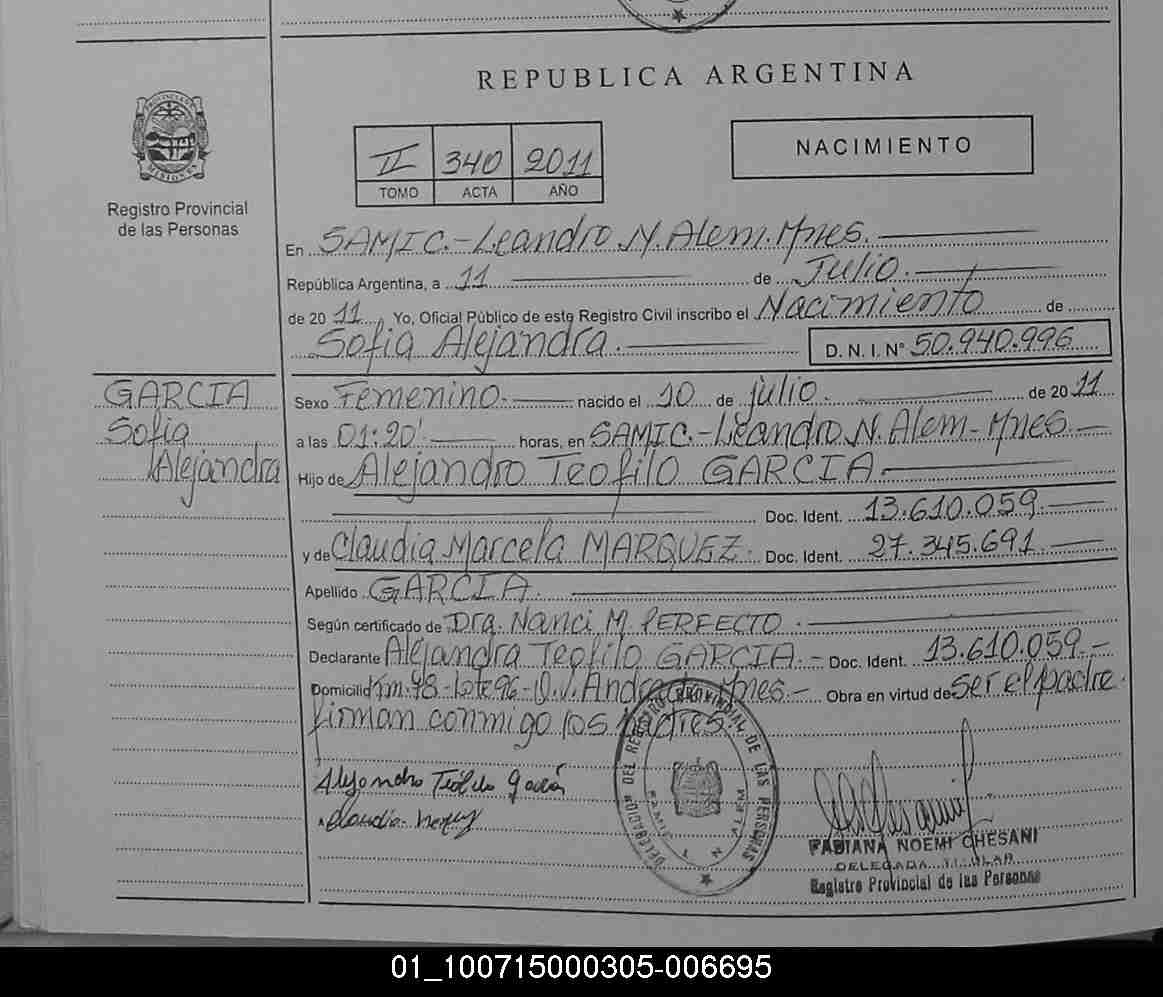 REPUBLICA ARGENTINA
II 340 2011
TOMO ACTA AÑO
NACIMIENTO
PROVINCIA DE MISIONES
Registro Provincial
de las Personas
En SAMIC.-Leandro N. Alem. Mnes.
República Argentina, a 11 de Julio.
de 2011 Yo, Oficial Público de este Registro Civil inscribo el Nacimiento de
Sofia Alejandra. D. N. I. N° 50.940.996
GARCIA
Sofia
Alejandra
Sexo Femenino. nacido el 10 de julio. de 2011
a las 01:20' horas, en SAMIC.-Leandro N. Alem- Mnes.
Hijo de Alejandro Teofilo GARCIA.
Doc. Ident. 13.610.059.
y de Claudia Marcela MARQUEZ. Doc. Ident. 27.345.691.
Apellido GARCIA.
Según certificado de Dra. Nanci M. PERFECTO.
Declarante Alejandra Teofilo GARCIA.- Doc. Ident. 13.610.059.-
Domicilio Km. 98-Lote 96- Mnes.- Obra en virtud de ser el padre.
firman conmigo los padres.
Alejandro Teófilo García
Claudia
DELEGACION DEL REGISTRO PROVINCIAL DE LAS PERSONAS
FABIANA NOEMI CHESANI
DELEGADA TITULAR
Registro Provincial de las Personas
01_100715000305-006695